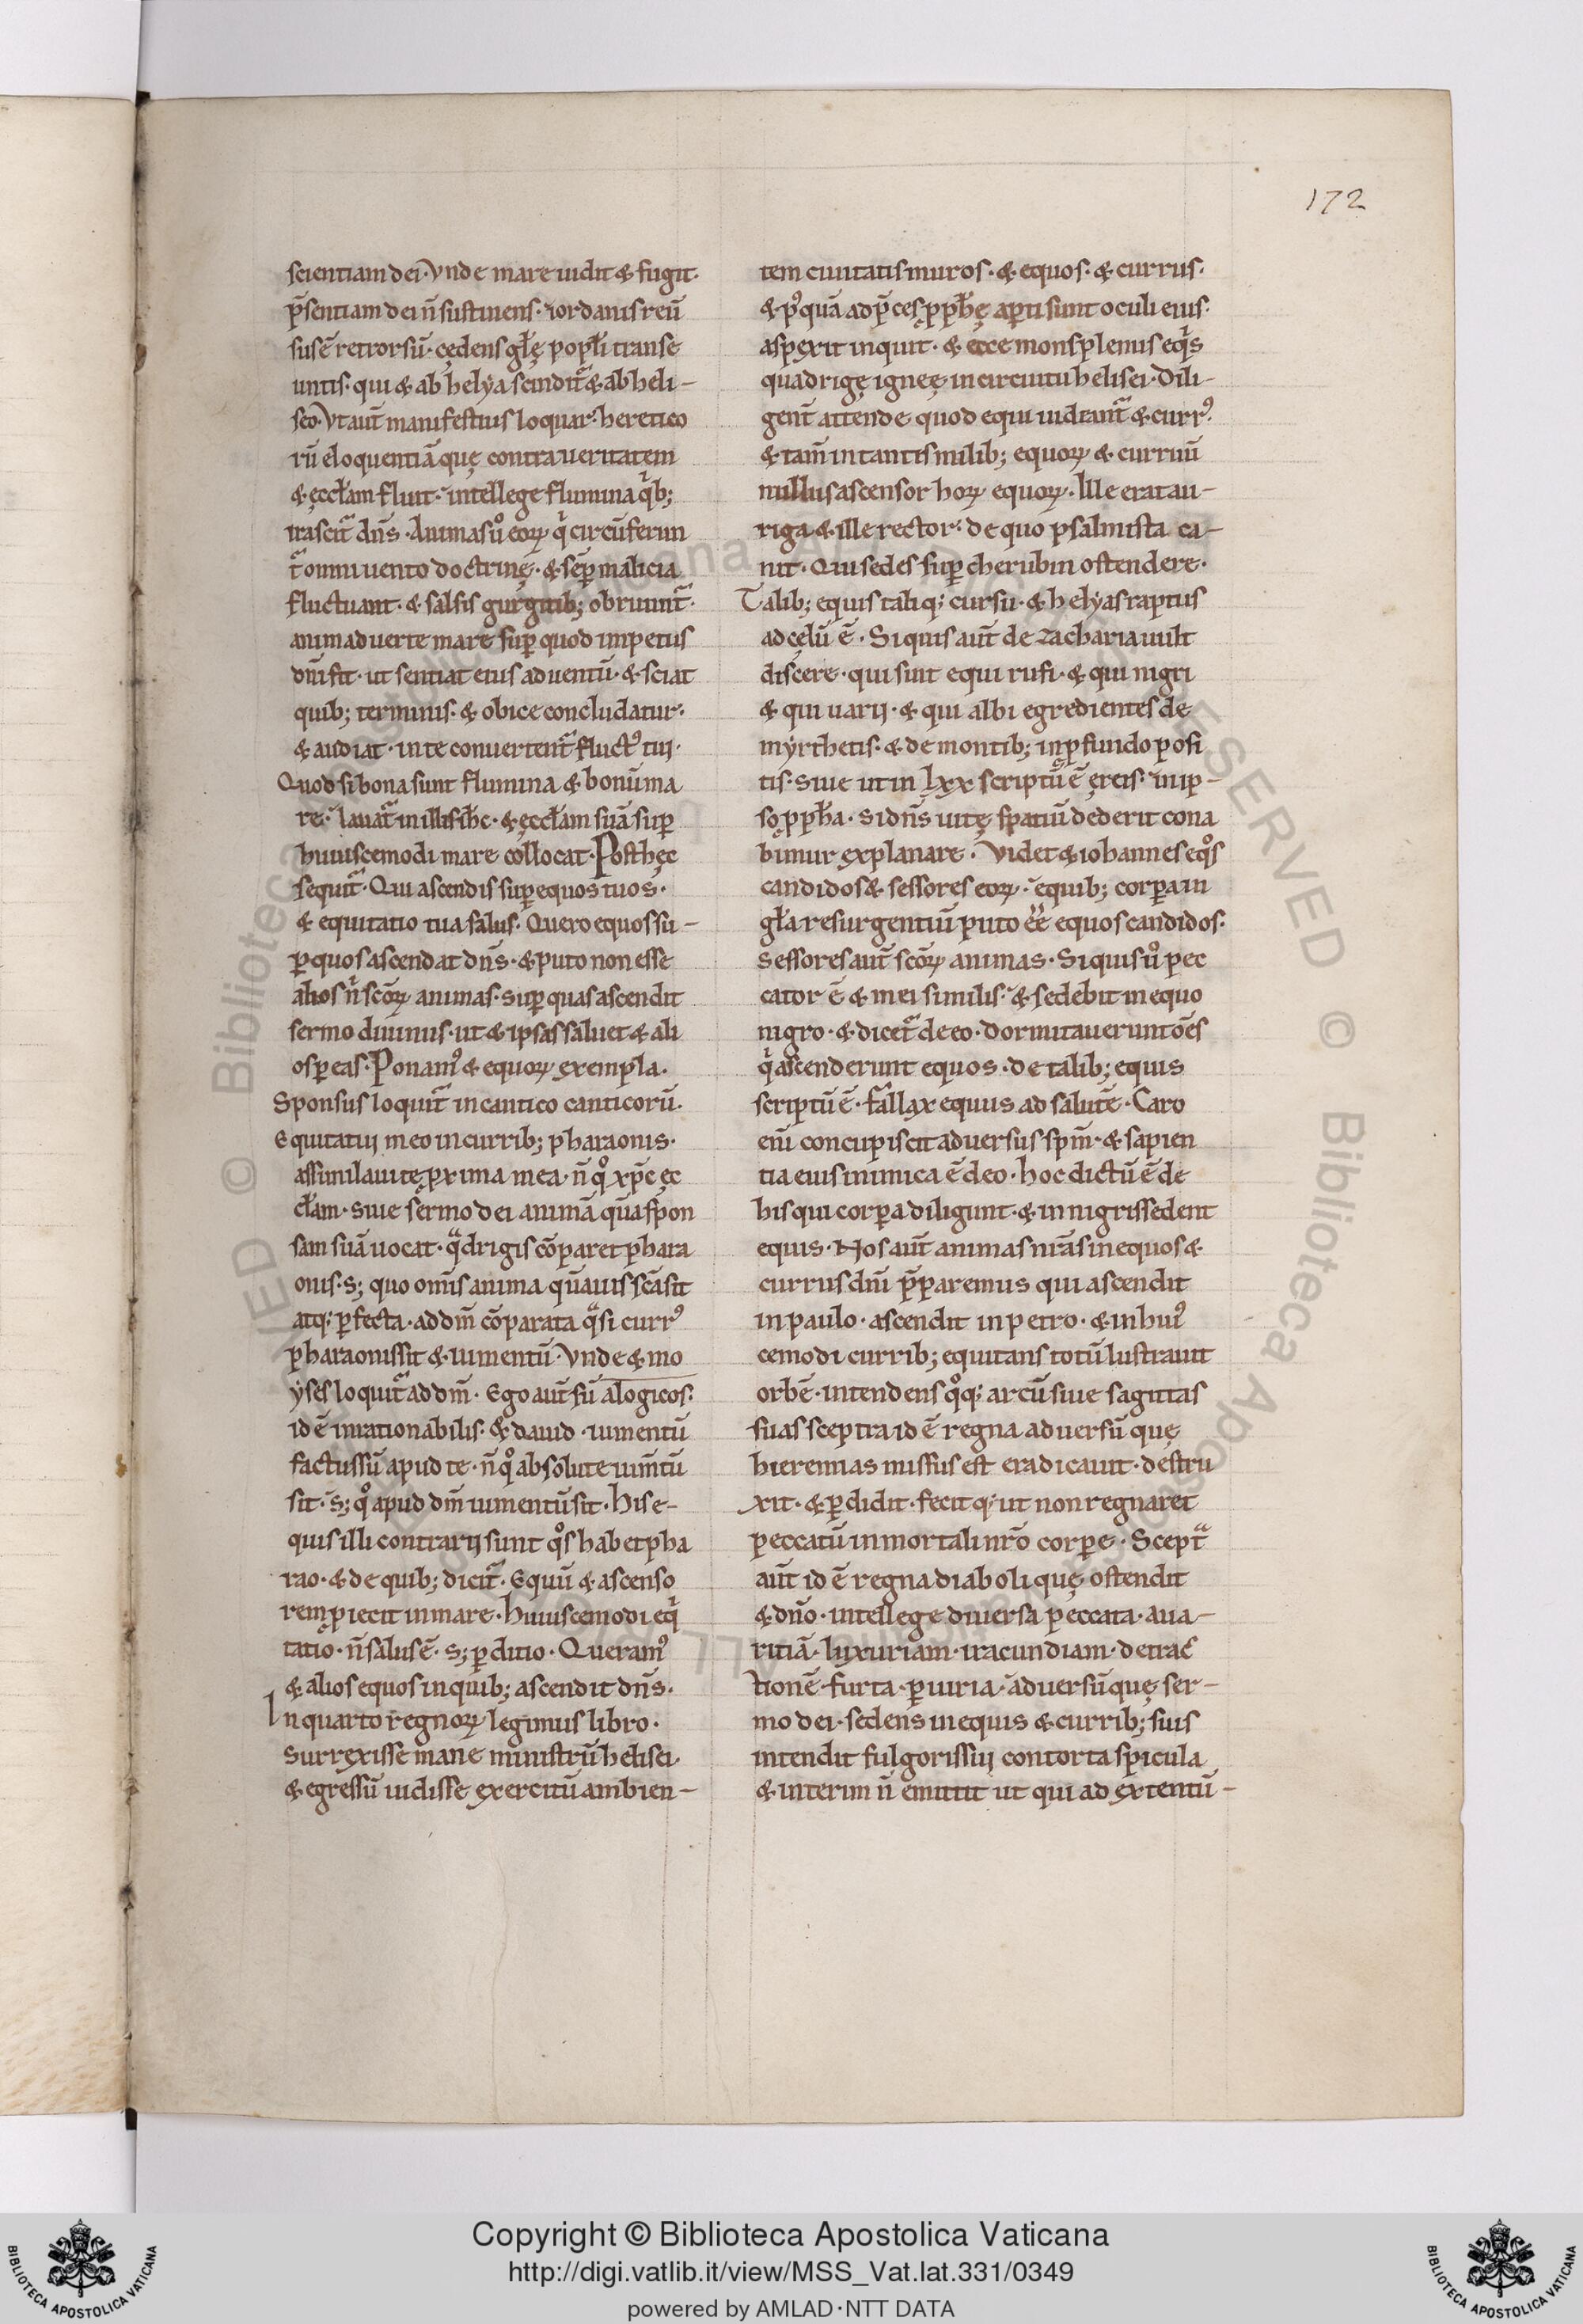 172
scientiam dei· Vnde mare uidit & fugit·
p̄sentiam dei n̄ sustinens· iordanis reū
sus ē retrorsū· cedens głę popłi transe
untis· qui & ab helya scindit᷑ & ab heli-
seo· Vt aut̄ manifestius loquar· heretico
rū eloquentiā quę contra ueritatem
& ęccłam fluit· intellege flumina qͥb;
irascit᷑ dn̄s· Animas uͦ eoꝝ qͥ circūferun
t᷑ omni uento doctrinę· & sēp malicia
fluctuant· & salsis gurgitib; obruunt᷑·
animaduerte mare sup̄ quod impetus
dn̄i fit· ut sentiat eius aduentū· & sciat
quib; terminis· & obice concludatur·
& audiat· in te conuertent᷑ fluctꝰ tui·
Quod si bona sunt flumina & bonū ma
re· lauat᷑ in illis ih̄c· & ęccłam suā sup̄
huiuscemodi mare collocat· Post hęc
sequit᷑· Qui ascendis sup̄ equos tuos·
& equitatio tua salus· Quero equos su-
ꝑ quos ascendat dn̄s· & puto non esse
alios n̄ scōꝝ animas· sup̄ quas ascendit
sermo diuinus· ut & ipsas saluet & ali
os ꝑ eas· Ponamꝰ & equoꝝ exempla·
Sponsus loquit᷑ in cantico canticorū·
Equitatui meo in currib; pharaonis·
assimilaui te ꝓxima mea· n̄ qͦ xp̄c ęc
cłam· siue sermo dei animā quā spon
sam suā uocat· qͣdrigis cōparet phara
onis· s; quo om̄is anima quāuis scā sit
atq; ꝑfecta· ad dm̄ cōparata qͣsi currꝰ
pharaonis sit & iumentū· Vnde & mo
yses loquit᷑ ad dm̄· Ego aut̄ sū alogicos·
id ē inrationabilis· & dauid· iumentū
factus sū apud te· n̄ qͦ absolute ium̄tū
sit· s; qͦ apud dm̄ iumentū sit· His e-
quis illi contrarij sunt qͦs habet pha
rao· & de quib; dicit᷑· Equū & ascenso
rem ꝓiecit in mare· Huiuscemodi eqͥ
tatio· n̄ salus ē· s; ꝑditio· Queramꝰ
& alios equos in quib; ascendit dn̄s·
In quarto regnoꝝ legimus libro·
surrexisse mane ministrū helisei·
& egressū uidisse exercitū ambien-
tem ciuitatis muros· & equos· & currus·
& pꝰquā ad p̄ces ꝓph̄ę aꝑti sunt oculi eius·
aspexit inquit· & ecce mons plenus eqͥs
quadrigę igneę in circuitu helisei· Dili-
gent̄ attende quod equi uidiant᷑ & currꝰ·
& tam̄ in tantis milib; equoꝝ & curruū
nullus ascensor hoꝝ equoꝝ· Ille erat au-
riga & ille rector· de quo psalmista ca-
nit· Qui sedes sup̄ cherubin ostendere·
Talib; equis taliq; cursu· & helyas raptus
ad cęlū ē· Si quis aut̄ de zacharia uult
discere· qui sint equi rufi· & qui nigri
& qui uarij· & qui albi egredientes de
myrthetis· & de montib; in ꝓfundo posi
tis· siue ut in lxx scriptū ē ęreis· in ip-
so ꝓph̄a· si dn̄s uitę spatiū dederit cona
bimur explanare· Videt & iohannes eqͦs
candidos & sessores eoꝝ· e quib; corꝑa in
gła resurgentiū puto ee̅ equos candidos·
Sessores aut̄ scōꝝ animas· Si quis uͦ pec
cator ē & mei similis· & sedebit in equo
nigro· & dicet᷑ de eo· Dormitauerunt oēs
qͥ ascenderunt equos· de talib; equis
scriptū ē· fallax equus ad salutē· Caro
eni̅ concupiscit aduersus spm̄· & sapien
tia eius inimica ē deo· hoc dictū ē de
his qui corꝑa diligunt· & in nigris sedent
equis· Nos aut̄ animas nr̄as in equos &
currus dn̄i p̄paremus qui ascendit
in paulo· ascendit in petro· & in huiꝰ
cemodi currib; equitans totū lustrauit
orbē· intendens qͦq; arcū siue sagittas
suas sceptra id ē regna aduersū quę
hieremias missus est eradicauit· destru
xit· & ꝑdidit· fecit q; ut non regnaret
peccatū in mortali nr̄o corꝑe· Sceptͣ
aut̄ id ē regna diaboli quę ostendit
& dn̄o· intellege diuersa peccata· aua-
ritiā· luxuriam· iracundiam· detrac
tionē· furta· ꝑiuria· aduersū quę ser-
mo dei· sedens in equis & currib; suis
intendit fulgorissij contorta spicula
& interim n̄ emittit ut qui ad extentū-
Copyright © Biblioteca Apostolica Vaticana
http://digi.vatlib.it/view/MSS_Vat.lat.331/0349
powered by AMLAD·NTT DATA
BIBLIOTECA APOSTOLICA VATICANA
BIBLIOTECA APOSTOLICA VATICANA